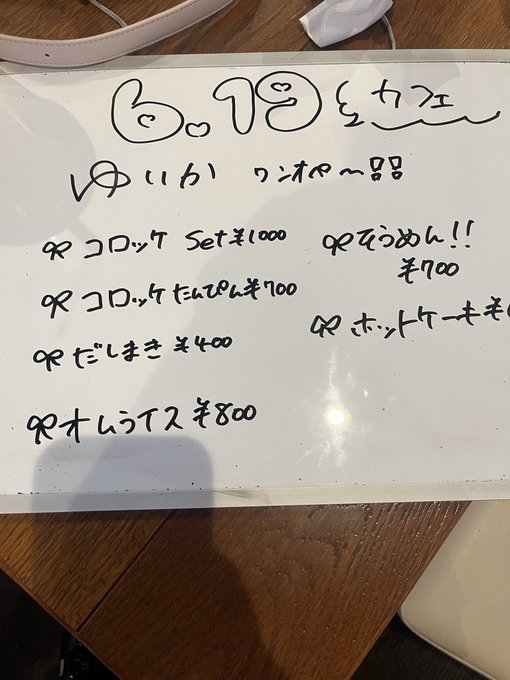 6.19 カフェ
ゆいか ワンオペ〜!!
コロッケ Set ¥1000
コロッケたんぴん¥700
だしまき ¥400
オムライス ¥800
そうめん!!
¥700
ホットケーキ¥